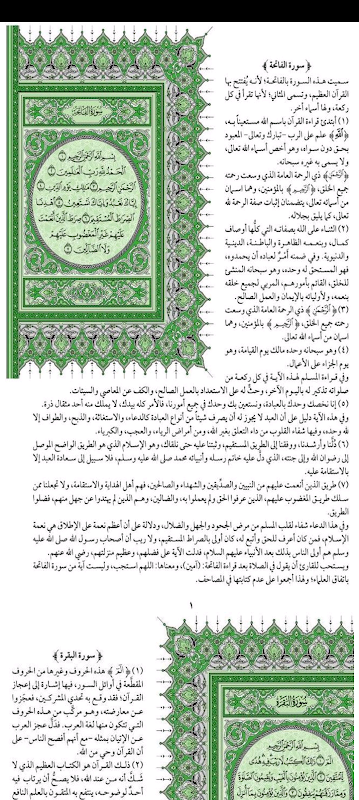 ﴿ سورة الفاتحة ﴾
سميت هذه السورة بالفاتحة؛ لأنه يُفتتح بها
القرآن العظيم، وتسمى المثاني؛ لأنها تقرأ في كل
ركعة، ولها أسماء أخر.
(١) أبتدئ قراءة القرآن باسم الله مستعينا به،
﴿اللَّهِ﴾ علم على الرب -تبارك وتعالى- المعبود
بحق دون سواه، وهو أخص أسماء الله تعالى،
ولا يسمى به غيره سبحانه.
﴿الرَّحْمَٰنِ﴾ ذي الرحمة العامة الذي وسعت رحمته
جميع الخلق، ﴿الرَّحِيمِ﴾ بالمؤمنين، وهما اسمان
من أسمائه تعالى، يتضمنان إثبات صفة الرحمة لله
تعالى كما يليق بجلاله.
(٢) الثناء على الله بصفاته التي كلُّها أوصاف
كمال، وبنعمه الظاهرة والباطنة، الدينية
والدنيوية، وفي ضمنه أَمْرٌ لعباده أن يحمدوه،
فهو المستحق له وحده، وهو سبحانه المنشئ
للخلق، القائم بأمورهم، المربي لجميع خلقه
بنعمه، ولأوليائه بالإيمان والعمل الصالح.
(٣) ﴿الرَّحْمَٰنِ﴾ ذي الرحمة العامة الذي وسعت
رحمته جميع الخلق، ﴿الرَّحِيمِ﴾ بالمؤمنين، وهما
اسمان من أسماء الله تعالى.
(٤) وهو سبحانه وحده مالك يوم القيامة، وهو
يوم الجزاء على الأعمال.
وفي قراءة المسلم لهذه الآية في كل ركعة من
صلواته تذكير له باليوم الآخر، وحثٌّ له على الاستعداد بالعمل الصالح، والكف عن المعاصي والسيئات.
(٥) إنا نخصك وحدك بالعبادة، ونستعين بك وحدك في جميع أمورنا، فالأمر كله بيدك، لا يملك منه أحد مثقال ذرة.
وفي هذه الآية دليل على أن العبد لا يجوز له أن يصرف شيئًا من أنواع العبادة كالدعاء، والاستغاثة، والذبح، والطواف إلا
لله وحده، وفيها شفاء القلوب من داء التعلق بغير الله، ومن أمراض الرياء، والعجب، والكبرياء.
(٦) دُلَّنا وأرشدنا، ووفقنا إلى الطريق المستقيم، وثبتنا عليه حتى نلقاك، وهو الإسلام الذي هو الطريق الواضح الموصل
إلى رضوان الله وإلى جنته، الذي دلّ عليه خاتم رسله وأنبيائه محمد صلى الله عليه وسلم، فلا سبيل إلى سعادة العبد إلا
بالاستقامة عليه.
(٧) طريق الذين أنعمت عليهم من النبيين والصدِّيقين والشهداء والصالحين، فهم أهل الهداية والاستقامة، ولا تجعلنا ممن
سلك طريق المغضوب عليهم، الذين عرفوا الحق ولم يعملوا به، والضالين، وهم الذين لم يهتدوا عن جهل منهم، فضلوا
الطريق.
وفي هذا الدعاء شفاء لقلب المسلم من مرض الجحود والجهل والضلال، ودلالة على أن أعظم نعمة على الإطلاق هي نعمة
الإسلام، فمن كان أعرف للحق وأتبع له، كان أولى بالصراط المستقيم، ولا ريب أن أصحاب رسول الله صلى الله عليه
وسلم هم أولى الناس بذلك بعد الأنبياء عليهم السلام، فدلت الآية على فضلهم، وعظيم منزلتهم، رضي الله عنهم.
ويستحب للقارئ أن يقول في الصلاة بعد قراءة الفاتحة: (آمين)، ومعناها: اللهم استجب، وليست آية من سورة الفاتحة
باتفاق العلماء؛ ولهذا أجمعوا على عدم كتابتها في المصاحف.
سُورَةُ الفَاتِحَةِ
بِسْمِ اللَّهِ الرَّحْمَٰنِ الرَّحِيمِ ١
الْحَمْدُ لِلَّهِ رَبِّ الْعَالَمِينَ ٢
الرَّحْمَٰنِ الرَّحِيمِ ٣ مَالِكِ يَوْمِ الدِّينِ ٤
إِيَّاكَ نَعْبُدُ وَإِيَّاكَ نَسْتَعِينُ ٥ اهْدِنَا
الصِّرَاطَ الْمُسْتَقِيمَ ٦ صِرَاطَ الَّذِينَ أَنْعَمْتَ
عَلَيْهِمْ غَيْرِ الْمَغْضُوبِ عَلَيْهِمْ
وَلَا الضَّالِّينَ ٧
١
﴿ سورة البقرة ﴾
(١) ﴿الٓمٓ﴾ هذه الحروف وغيرها من الحروف
المقطَّعة في أوائل السور، فيها إشارة إلى إعجاز
القرآن؛ فقد وقع به تحدي المشركين، فعجَزوا
عن معارضته، وهو مركَّب من هذه الحروف
التي تتكون منها لغة العرب. فدَلَّ عجز العرب
عن الإتيان بمثله -مع أنهم أفصح الناس- على
أن القرآن وحي من الله.
(٢) ذلك القرآن هو الكتاب العظيم الذي لا
شَكَّ أنه من عند الله، فلا يصحُّ أن يرتاب فيه
أحد لوضوحه، ينتفع به المتقون بالعلم النافع
سُورَةُ البَقَرَةِ